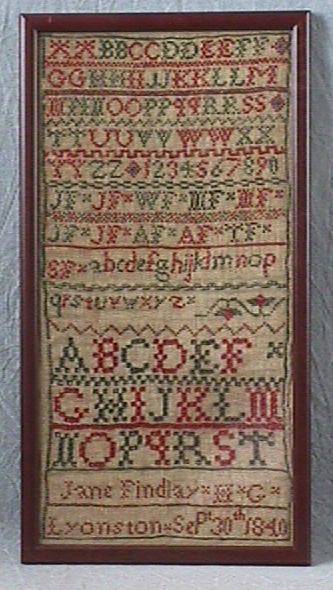 AABBCCDDEEFF
GGHHIIJJKKLLM
MNNOOPPQQRRSS
TTUUVVWWXX
YYZZ 1234567890
JF JF WF MF MF
JF JF AF AF TF
SF abcdefghijklmnop
qrstuvwxyz
ABCDEF
GHIJKLM
NOPQRST
Jane Findlay H G
Lyonston Sept 30th 1840